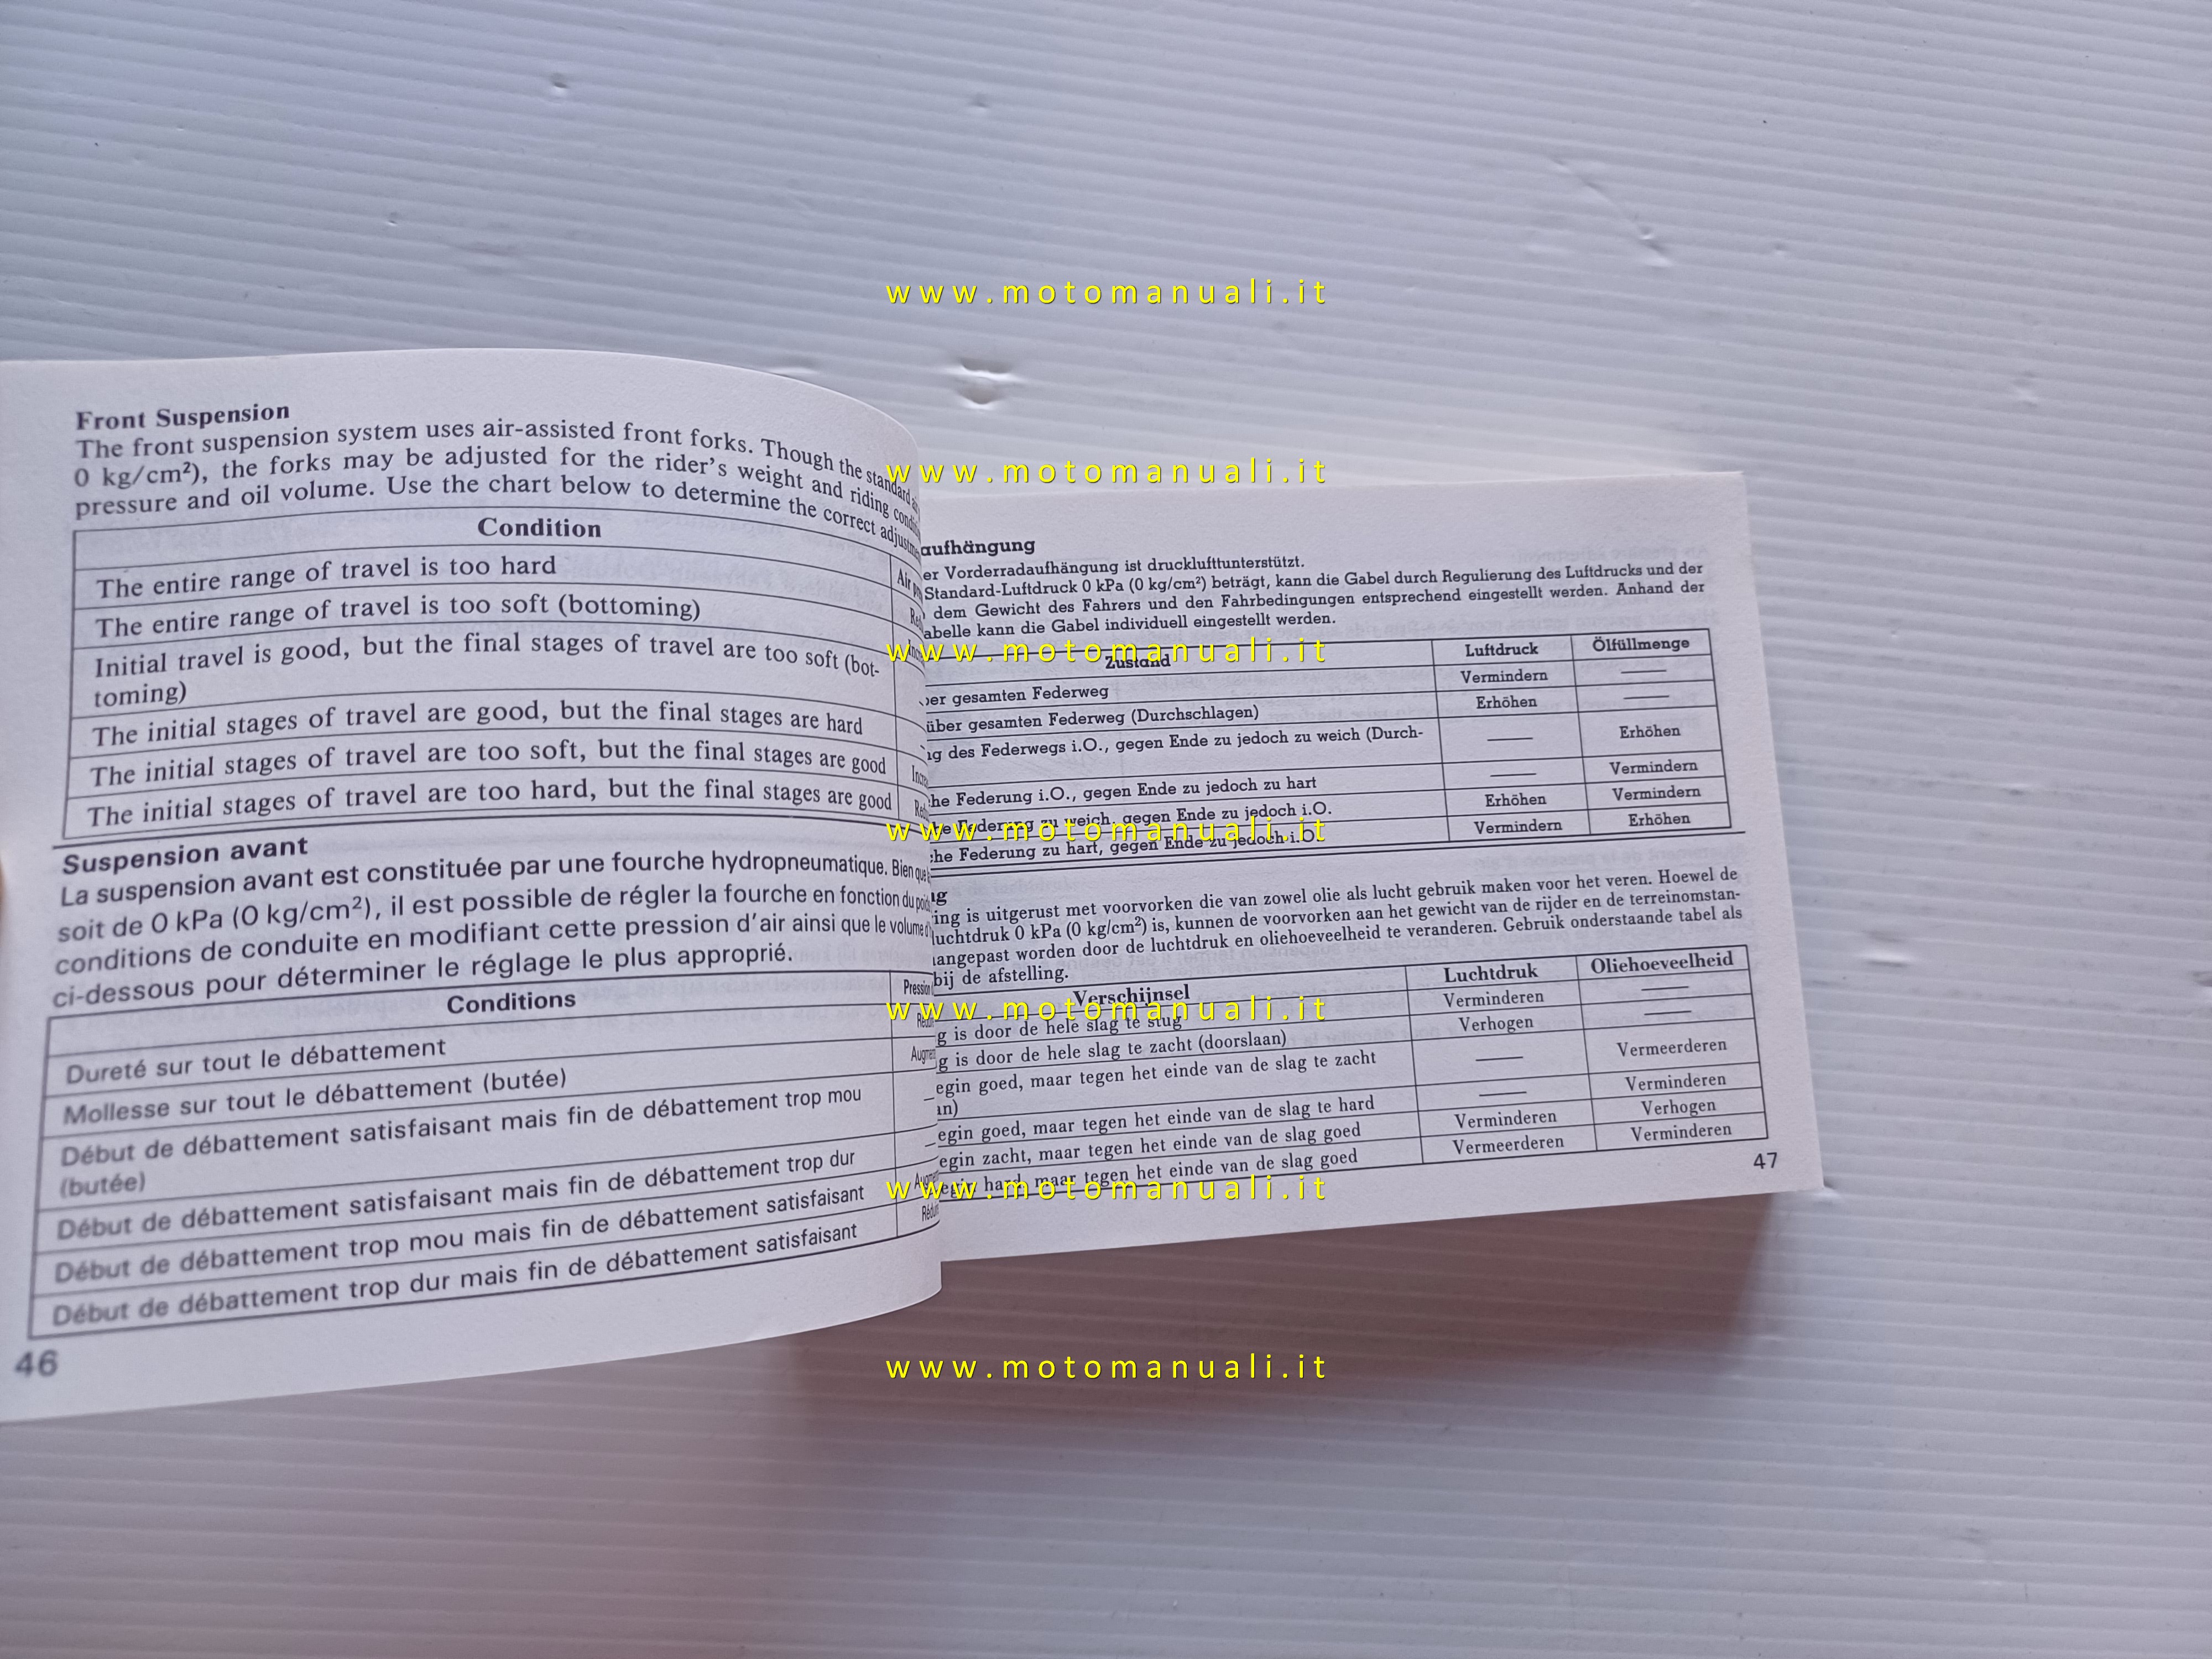 Front Suspension
The front suspension system uses air-assisted front forks. Though the standard
0 kg/cm²), the forks may be adjusted for the rider's weight and riding
pressure and oil volume. Use the chart below to determine the correct
Condition
Air
The entire range of travel is too hard
The entire range of travel is too soft (bottoming)
Initial travel is good, but the final stages of travel are too soft (bot-
toming)
The initial stages of travel are good, but the final stages are hard
The initial stages of travel are too soft, but the final stages are good
The initial stages of travel are too hard, but the final stages are good
Suspension avant
La suspension avant est constituée par une fourche hydropneumatique. Bien que
soit de 0 kPa (0 kg/cm²), il est possible de régler la fourche en fonction du
conditions de conduite en modifiant cette pression d'air ainsi que le volume
ci-dessous pour déterminer le réglage le plus approprié.
Conditions
Pression
Dureté sur tout le débattement
Mollesse sur tout le débattement (butée)
Début de débattement satisfaisant mais fin de débattement trop mou
(butée)
Début de débattement satisfaisant mais fin de débattement trop dur
Début de débattement trop mou mais fin de débattement satisfaisant
Début de débattement trop dur mais fin de débattement satisfaisant
46
aufhängung
er Vorderradaufhängung ist drucklufttunterstützt.
Standard-Luftdruck 0 kPa (0 kg/cm²) beträgt, kann die Gabel durch Regulierung des Luftdrucks und der
dem Gewicht des Fahrers und den Fahrbedingungen entsprechend eingestellt werden. Anhand der
abelle kann die Gabel individuell eingestellt werden.
Zustand Luftdruck Ölfüllmenge
ber gesamten Federweg Vermindern ——
über gesamten Federweg (Durchschlagen) Erhöhen ——
g des Federwegs i.O., gegen Ende zu jedoch zu weich (Durch- —— Erhöhen
he Federung i.O., gegen Ende zu jedoch zu hart —— Vermindern
he Federung zu weich, gegen Ende zu jedoch i.O. Erhöhen Vermindern
he Federung zu hart, gegen Ende zu jedoch i.O. Vermindern Erhöhen
ng
ing is uitgerust met voorvorken die van zowel olie als lucht gebruik maken voor het veren. Hoewel de
luchtdruk 0 kPa (0 kg/cm²) is, kunnen de voorvorken aan het gewicht van de rijder en de terreinomstan-
angepast worden door de luchtdruk en oliehoeveelheid te veranderen. Gebruik onderstaande tabel als
bij de afstelling.
Verschijnsel Luchtdruk Oliehoeveelheid
g is door de hele slag te stug Verminderen ——
g is door de hele slag te zacht (doorslaan) Verhogen ——
egin goed, maar tegen het einde van de slag te zacht —— Vermeerderen
an)
egin goed, maar tegen het einde van de slag te hard —— Verminderen
egin zacht, maar tegen het einde van de slag goed Verminderen Verhogen
egin hard, maar tegen het einde van de slag goed Vermeerderen Verminderen
47
www.motomanuali.it
www.motomanuali.it
www.motomanuali.it
www.motomanuali.it
www.motomanuali.it
www.motomanuali.it
www.motomanuali.it